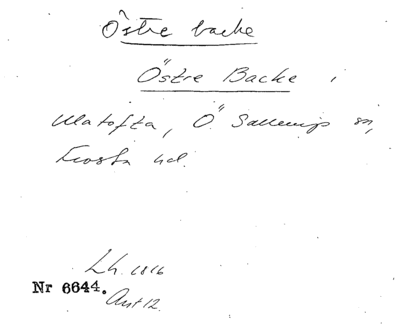 Östre backe
Östre Backe i
Ulatofta, Ö Sallerup sn,
Frosta hd.
Lh. 1816
Nr 6644.
Akt 12.